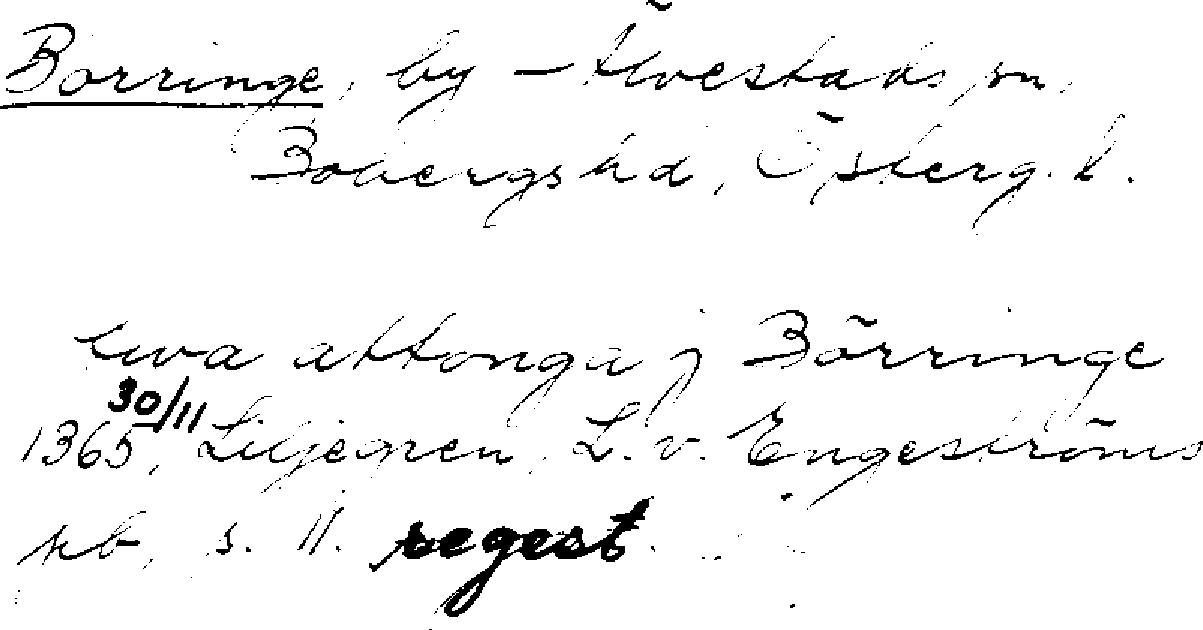 Borringe, by – Älvestads sn,
Bobergs hd, Österg. l.
tuva attonga j Börringe
1365 30/11, Liljegren, L. v. Engeströms
pb, s. 11. regest.